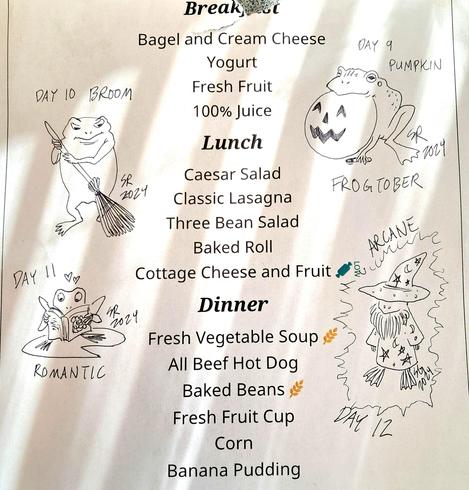 Breakfast
Bagel and Cream Cheese
Yogurt
Fresh Fruit
100% Juice
Lunch
Caesar Salad
Classic Lasagna
Three Bean Salad
Baked Roll
Cottage Cheese and Fruit
Dinner
Fresh Vegetable Soup
All Beef Hot Dog
Baked Beans
Fresh Fruit Cup
Corn
Banana Pudding
DAY 9
PUMPKIN
SR
2024
FROGTOBER
DAY 10 BROOM
SR
2024
DAY 11
SR
2024
ROMANTIC
ARCANE
SR
2024
DAY 12